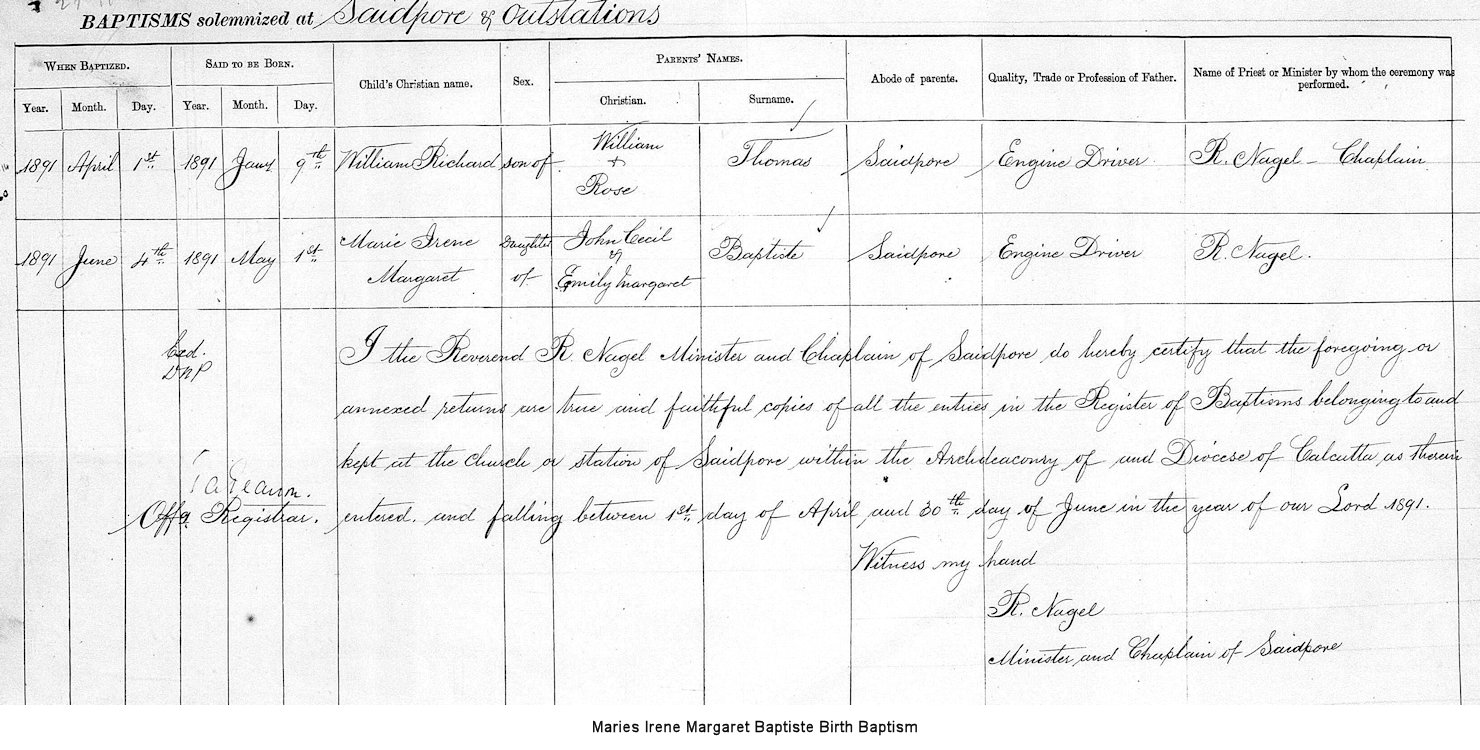 BAPTISMS solemnized at Saidpore & Outstations
WHEN BAPTIZED. SAID TO BE BORN. Child's Christian name. Sex. PARENTS' NAMES. Abode of parents. Quality, Trade or Profession of Father. Name of Priest or Minister by whom the ceremony was performed.
Year. Month. Day. Year. Month. Day. Christian. Surname.
1891 April 1st 1891 Jany 9th William Richard son of William + Rose Thomas Saidpore Engine Driver R. Nagel - Chaplain
1891 June 4th 1891 May 1st Marie Irene Margaret Daughter of John Cecil & Emily Margaret Baptiste Saidpore Engine Driver R. Nagel.
I the Reverend R. Nagel Minister and Chaplain of Saidpore do hereby certify that the foregoing or
annexed returns are true and faithful copies of all the entries in the Register of Baptisms belonging to and
kept at the Church or station of Saidpore within the Archdeaconry of and Diocese of Calcutta as therein
entered. and falling between 1st day of April and 30th day of June in the year of our Lord 1891.
Witness my hand
R. Nagel
Minister and Chaplain of Saidpore
Registrar.
Maries Irene Margaret Baptiste Birth Baptism